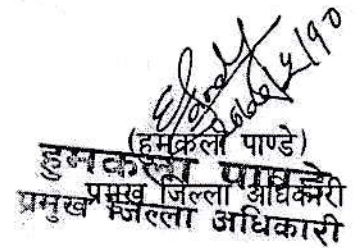 (हुमकला पाण्डे)
हुमकला पाण्डे
प्रमुख जिल्ला अधिकारी
प्रमुख जिल्ला अधिकारी